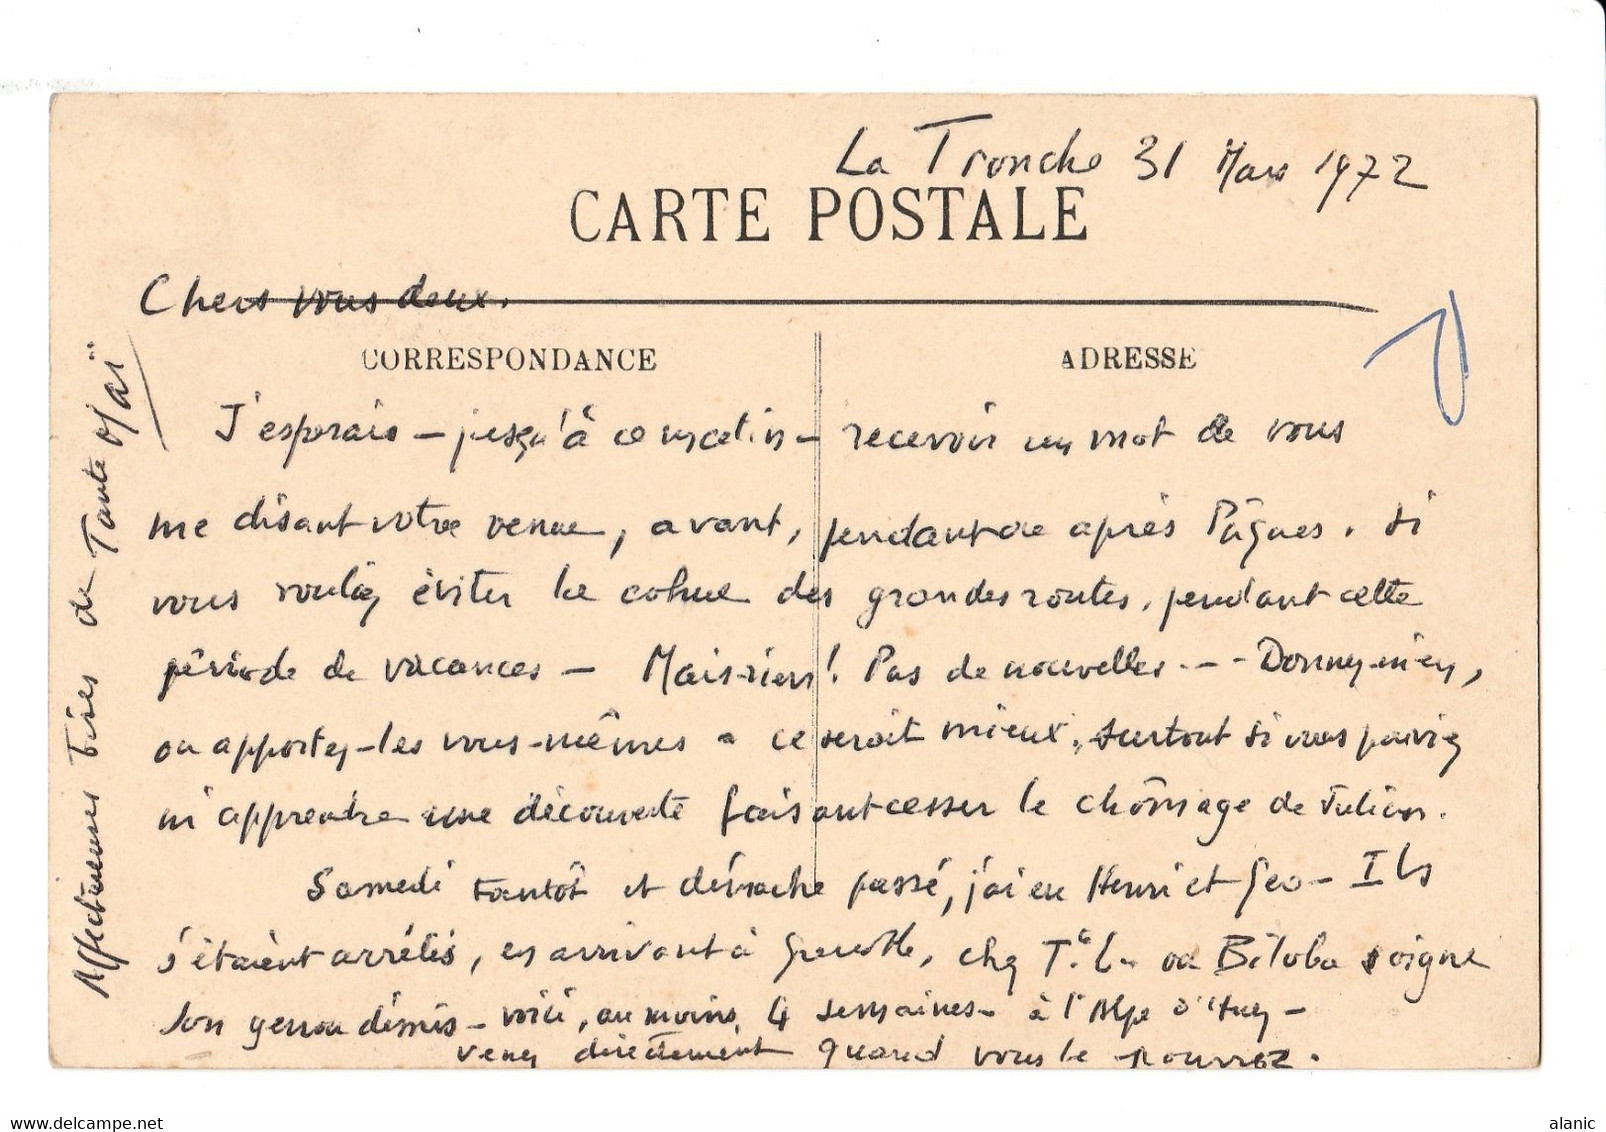 La Tronche 31 Mars 1972
CARTE POSTALE
Chers vous deux.
CORRESPONDANCE
ADRESSE
J'espérais – jusqu'à ce matin – recevoir un mot de vous
me disant votre venue, avant, pendant ou après Pâques. Si
vous vouliez éviter la cohue des grandes routes, pendant cette
période de vacances – Mais rien ! Pas de nouvelles - - - Donnez-m'en,
ou apportez-les vous-mêmes - ce serait mieux, surtout si vous pouviez
m'apprendre une découverte faisant cesser le chômage de Julien.
Samedi tantôt et dimanche passé, j'ai eu Henri et Geo – Ils
s'étaient arrêtés, en arrivant à Grenoble, chez Tᵉ L. où soigne
son genou démis – voici, au moins, 4 semaines – à l'Alpe d'Huez –
venez directement quand vous le pourrez.
Affectueuses bises de Tante
alanic
www.delcampe.net